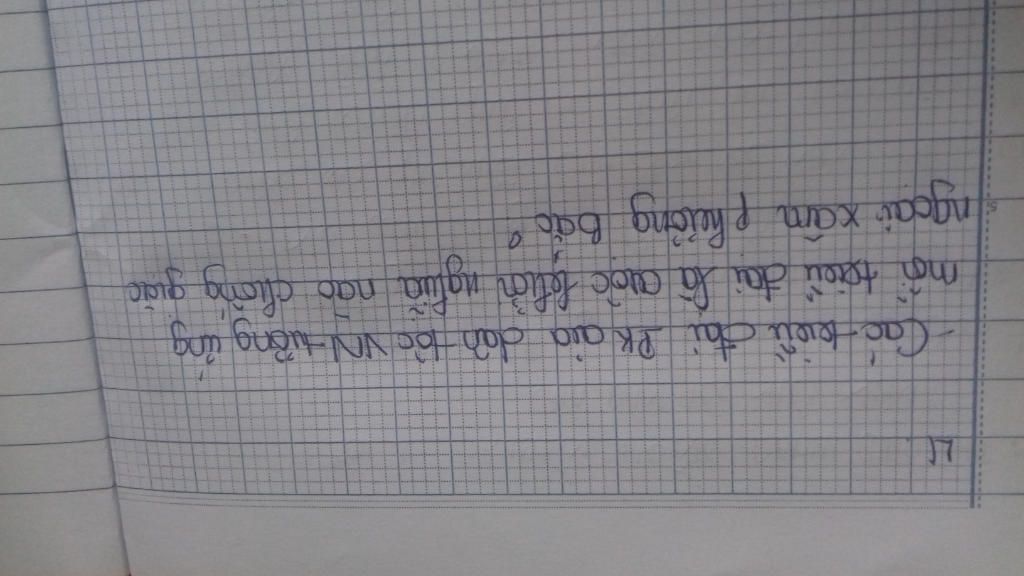 - Các triều đại PK của dân tộc VN tương ứng
mỗi triều đại là cuộc khởi nghĩa nào chống giặc
ngoại xâm phương Bắc